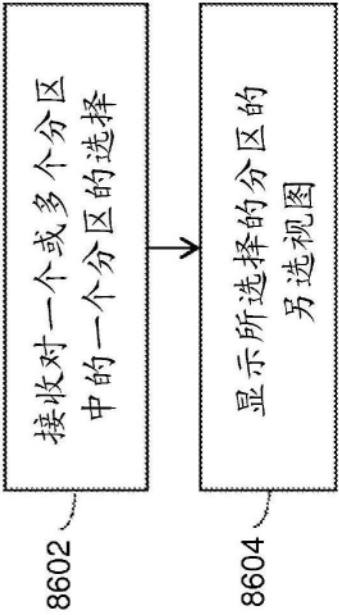 8602
接收对一个或多个分区
中的一个分区的选择
8604
显示所选择的分区的
另选视图